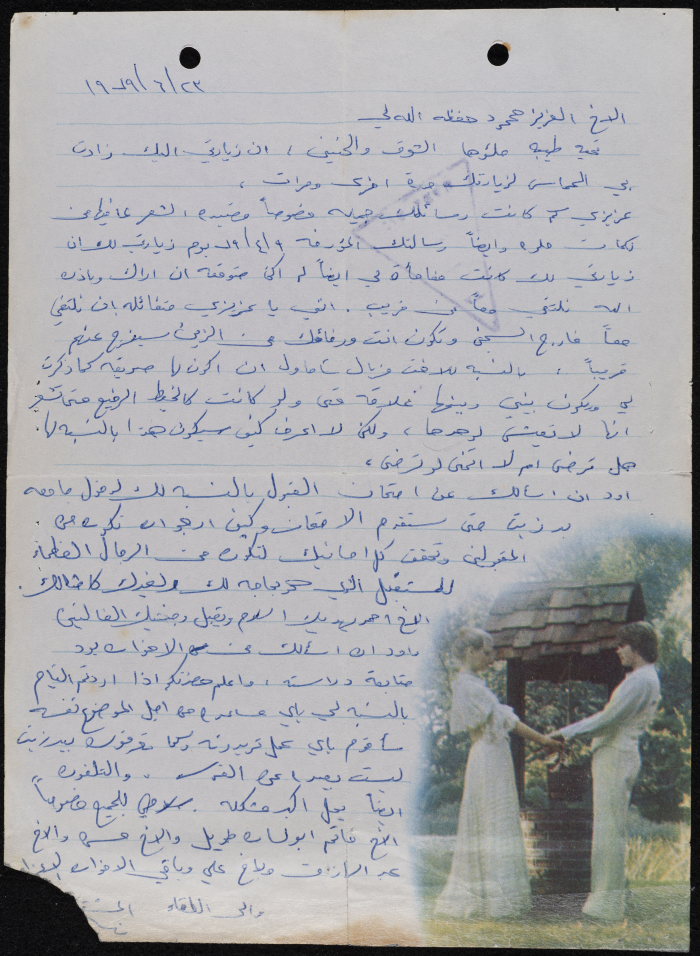 ١٩٨٩/٦/٢٣
الاخ العزيز محمود حفظه الله لي
تحية طيبة ملؤها الشوق والحنين ، ان زيارتي اليك زادت
بي الحماس لزيارتك مرة اخرى ومرات ،
عزيزي كم كانت رسائلك جميله خصوصاً قصيدة الشعر
كلمات حلوه وايضاً رسالتك المؤرخة ٩/٤/٩ يوم زيارتي لك ان
زيارتي لك كانت مفاجأة لي ايضاً لم اكن متوقعة ان اراك وباذن
الله نلتقي معاً عن قريب . انني يا عزيزي متفائلة بان نلتقي
معاً خارج السجن وتكون انت ورفاقك من الذين سيفرج عنهم
قريباً ، بالنسبه للاخت سأحاول ان اكون لها صديقة كما ذكرت
لي ويكون بيني وبينها علاقة حتى ولو كانت كالخيط الرفيع حتى تشعر
انها لا تعيش لوحدها ، ولكن لا اعرف كيف سيكون هذا بالنسبه لها .
هل ترضى ام لا اتمنى لو ترضى ،
اود ان اسألك عن امتحان القبول بالنسبه لك لدخول جامعه
بير زيت متى ستقدم الامتحان وكيف ارجو ان تكون من
المقبولين وتحقق كل امانيك لتكون من الرجال العظماء
للمستقبل الذي هو بحاجه لك ولغيرك كامثالك .
الاخ احمد يهديك السلام ويقبل وجنتيك الغاليتين
واود ان اسألك عن الاخوان بدو
متابعة دراسته ، واعلم حضرتكم اذا اردتم القيام
بالنسبه لي باي مساعده من اجل الموضوع نفسه
سأقوم باي عمل تريدونه وكما تعرفون بيرزيت
ليست بعيدا عن القدس . والتلفون
ايضاً يحل اكبر مشكله . سلامي للجميع خصوصاً
الاخ ابو لسان طويل والاخ والاخ
عبد الرازق والاخ علي وباقي الاخوان
والى اللقاء